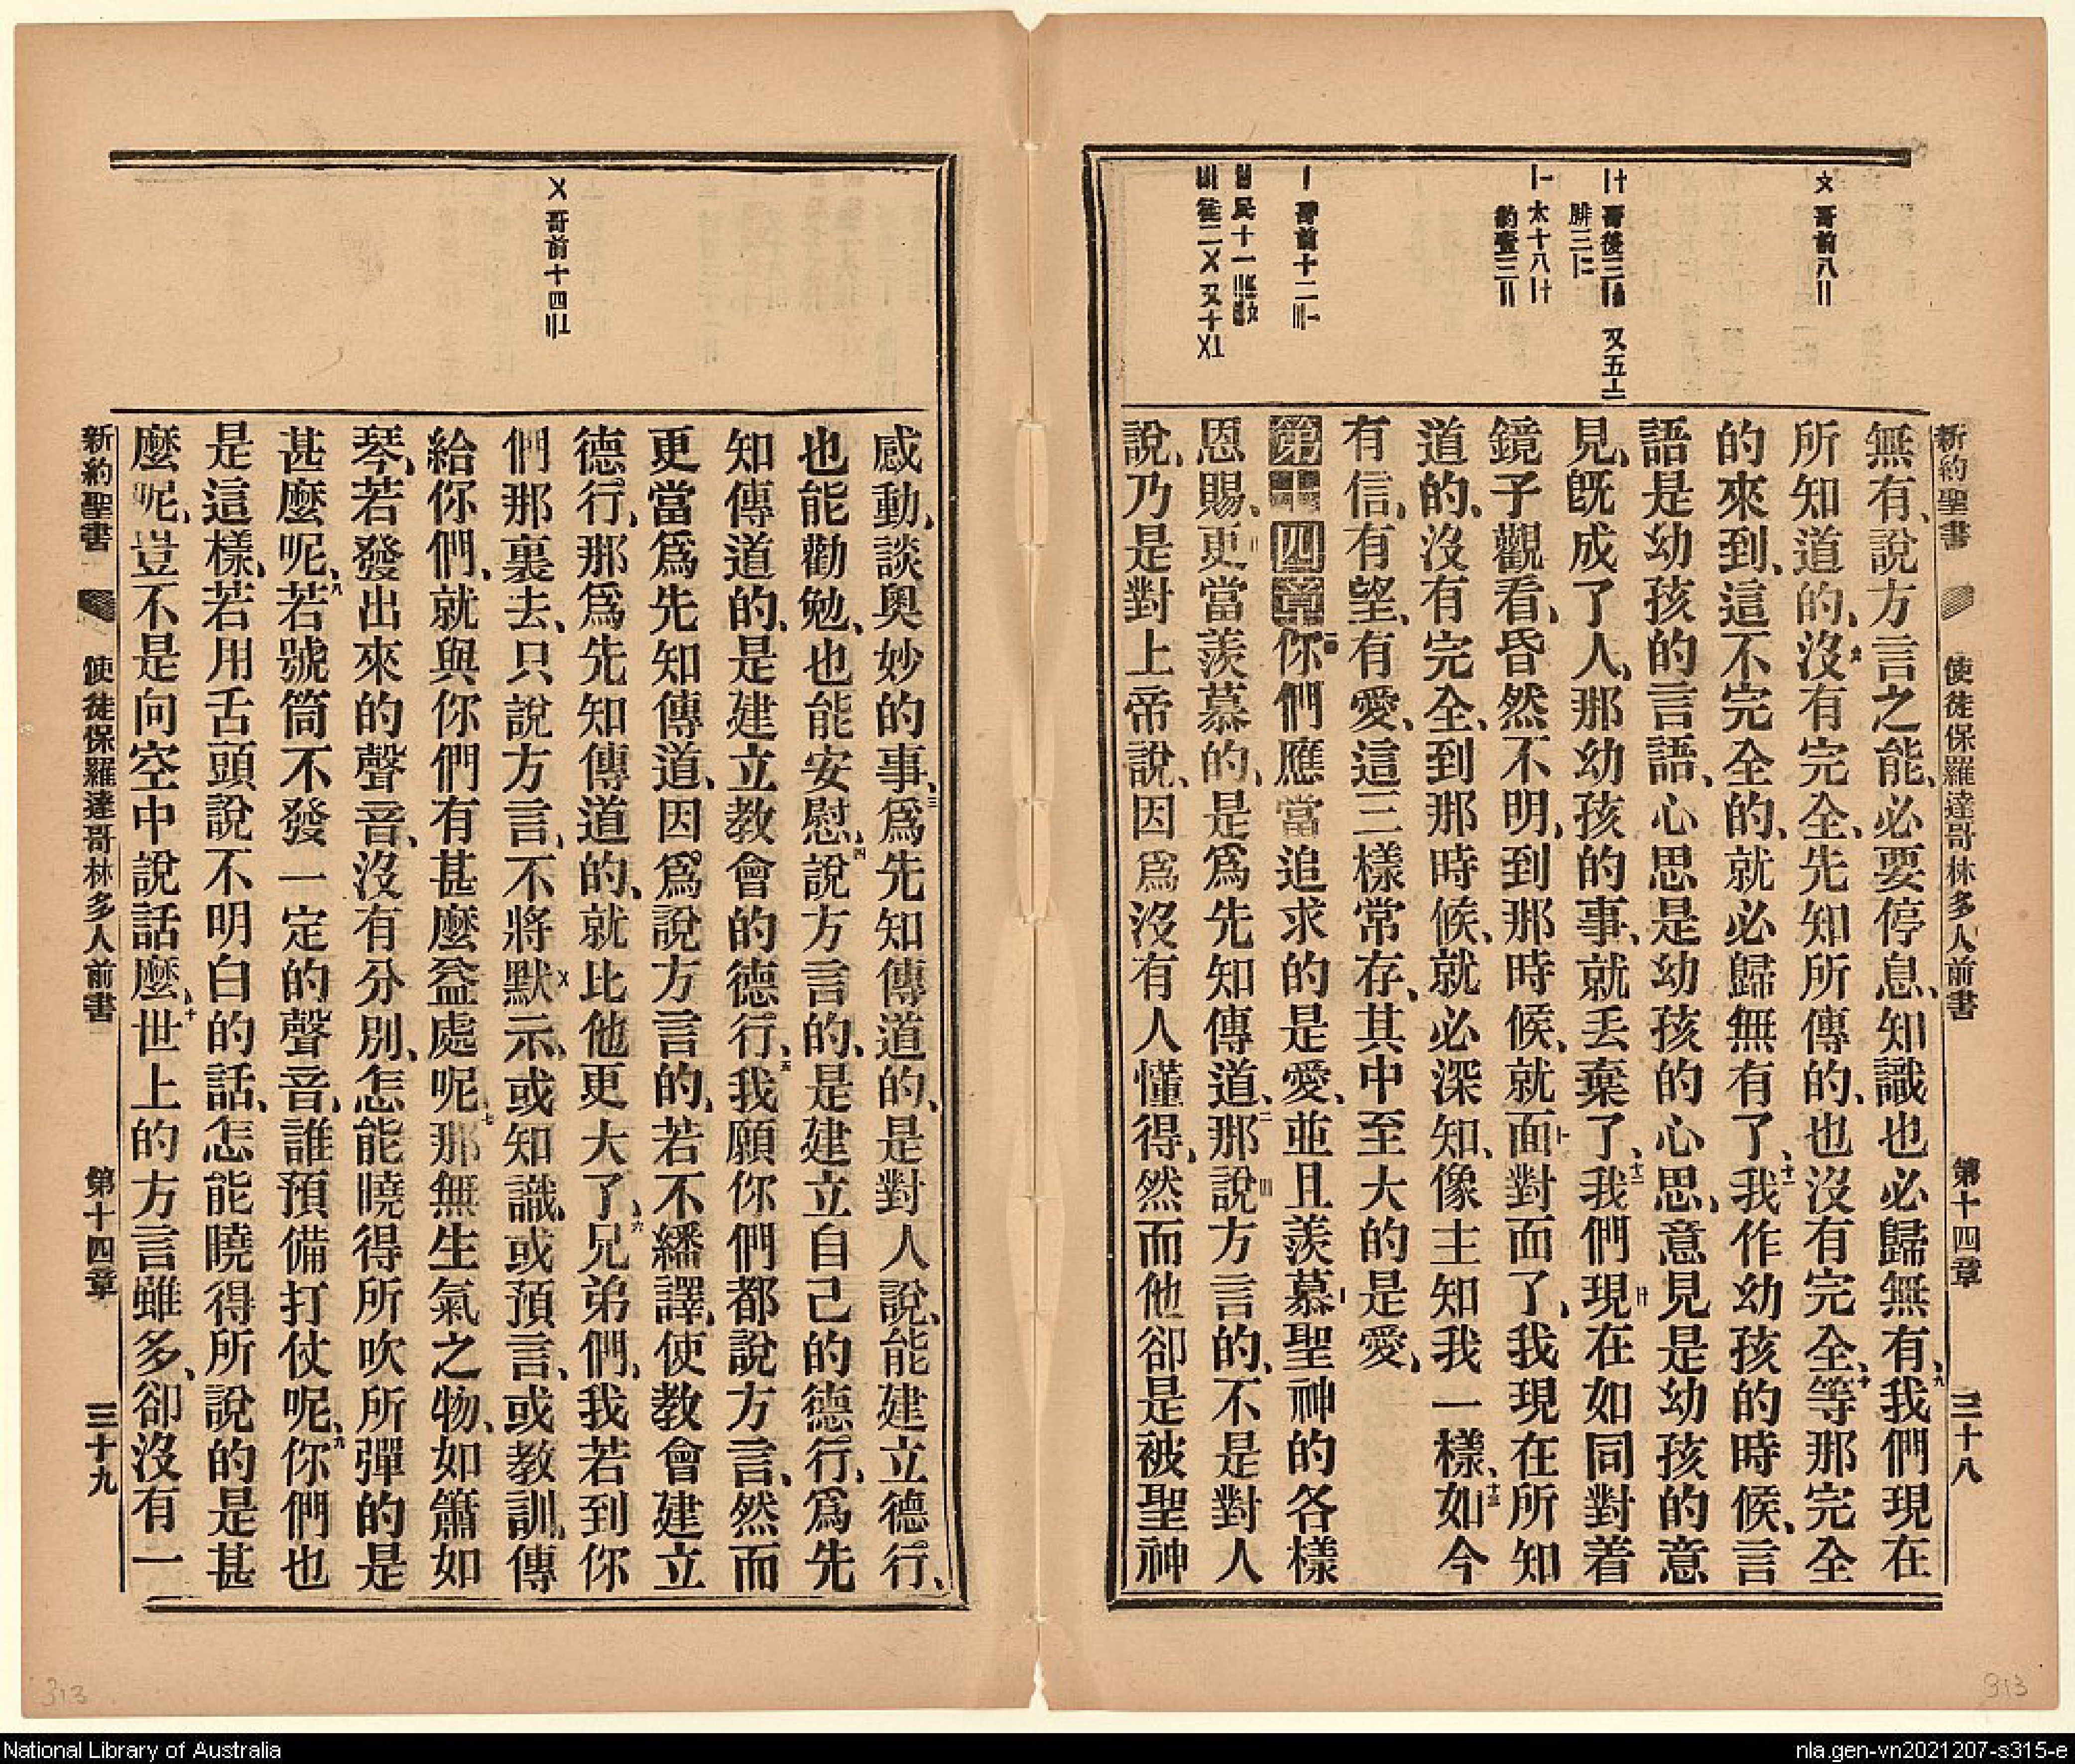 新約聖書 使徒保羅達哥林多人前書 第十四章 三十八
無有、說方言之能、必要停息、知識也必歸無有、九我們現在
所知道的、沒有完全、先知所傳的、也沒有完全、十等那完全
的來到、這不完全的、就必歸無有了、十一我作幼孩的時候、言
語是幼孩的言語、心思是幼孩的心思、意見是幼孩的意
見、旣成了人、那幼孩的事、就丟棄了、十二我們現在如同對着
鏡子觀看、昏然不明、到那時候、就面對面了、我現在所知
道的、沒有完全、到那時候、就必深知、像主知我一樣、十三如今
有信、有望、有愛、這三樣常存、其中至大的是愛、
第十四章 一你們應當追求的是愛、並且羨慕聖神的各樣
恩賜、更當羨慕的、是爲先知傳道、二那說方言的、不是對人
說、乃是對上帝說、因爲沒有人懂得、然而他卻是被聖神
〤 哥前八〢
〡〸 哥後三 又五〦
腓三
〡〡 太十八
約壹三〢
〡 哥前十二
〢 民十一
〣 徒二〤 又十〤〦
感動、談奧妙的事、三爲先知傳道的、是對人說、能建立德行、
也能勸勉、也能安慰、四說方言的、是建立自己的德行、爲先
知傳道的、是建立敎會的德行、五我願你們都說方言、然而
更當爲先知傳道、因爲說方言的、若不繙譯、使敎會建立
德行、那爲先知傳道的、就比他更大了、六兄弟們、我若到你
們那裏去、只說方言、不將默示、或知識、或預言、或敎訓、傳
給你們、就與你們有甚麽益處呢、七那無生氣之物、如簫如
琴、若發出來的聲音、沒有分別、怎能曉得所吹所彈的是
甚麽呢、八若號筒不發一定的聲音、誰預備打仗呢、九你們也
是這樣、若用舌頭說不明白的話、怎能曉得所說的是甚
麽呢、豈不是向空中說話麽、十世上的方言雖多、卻沒有一
〤 哥前十四
新約聖書 使徒保羅達哥林多人前書 第十四章 三十九
313
313
National Library of Australia
nla.gen-vn2021207-s315-e